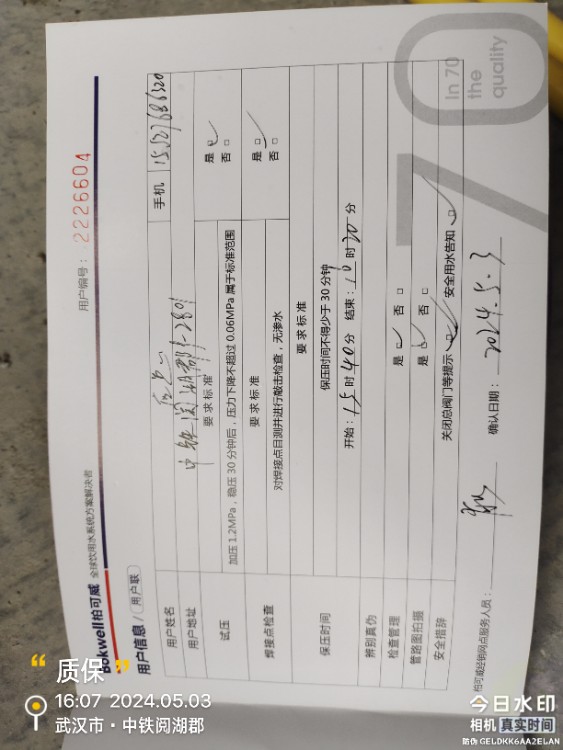 Bakwell柏可威 全球饮用水系统方案解决者
用户编号：2226604
用户信息/用户联
用户姓名 手机 15527686320
用户地址 中铁阅湖郡1-2801
试压 要求标准
加压1.2MPa，稳压30分钟后，压力下降不超过0.06MPa属于标准范围 是□ 否□
焊接点检查 要求标准
对焊接点目测并进行敲击检查，无渗水 是□ 否□
保压时间 要求标准
保压时间不得少于30分钟
开始：15时40分 结束：16时20分
辨别真伪
检查管理 是□ 否□
管路图拍摄 是□ 否□
安全措辞 关闭总阀门等提示□ 安全用水告知□
柏可威经销网点服务人员： 确认日期：2024.5.3
In 70
the
quality
70
“质保”
16:07 2024.05.03
武汉市·中铁阅湖郡
今日水印
相机 真实时间
防伪 GELDKK6AA2ELAN